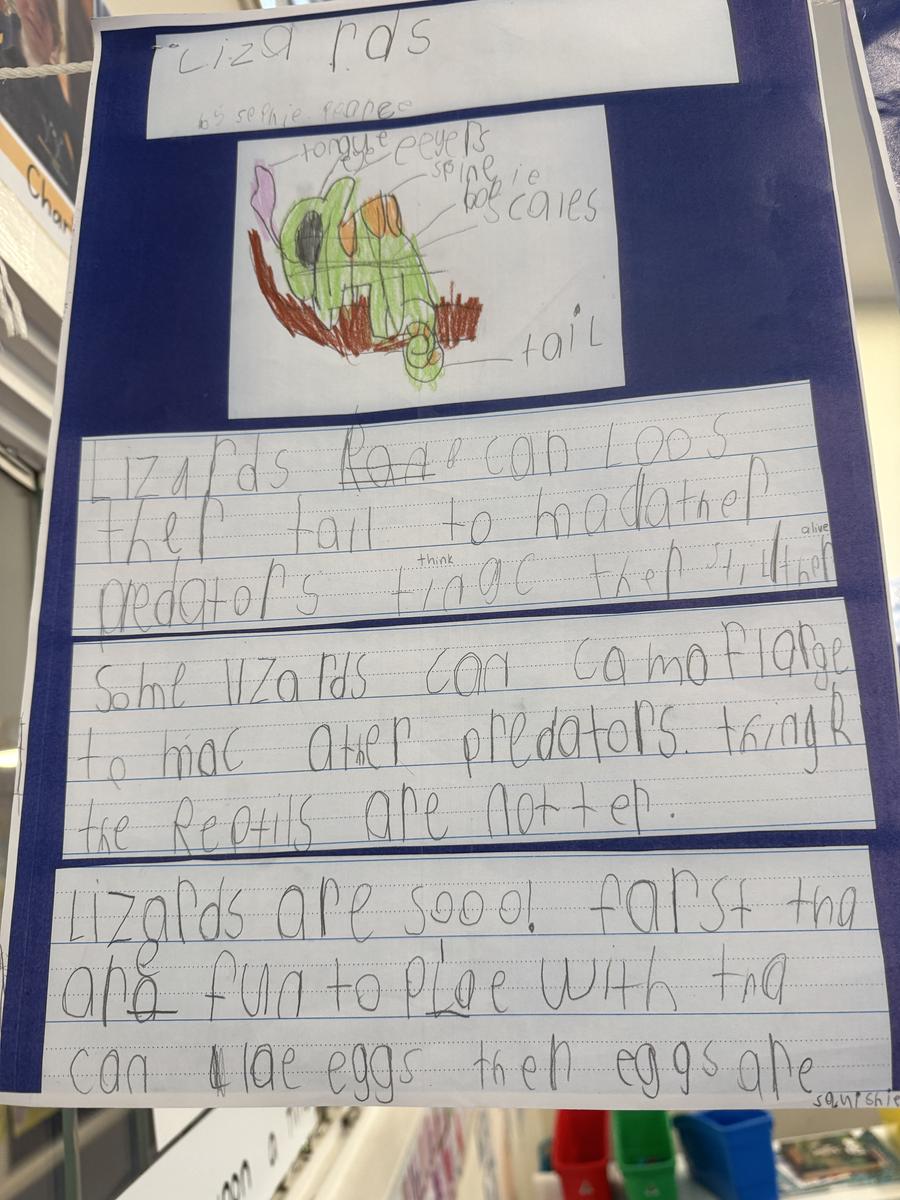 Lizards
by sophie
tongybe
eye
eeyeRs
spine
bodie
scales
tail
Lizards can Loos
ther tail to mac ather
predators tingc ther still ther
think
alive
Some lizards can camoflarge
to mac ather predators. thingk
the Reptils are not ter.
Lizards are sooo! farst tha
are fun to plae with tha
can lae eggs ther eggs are
squishie
Char